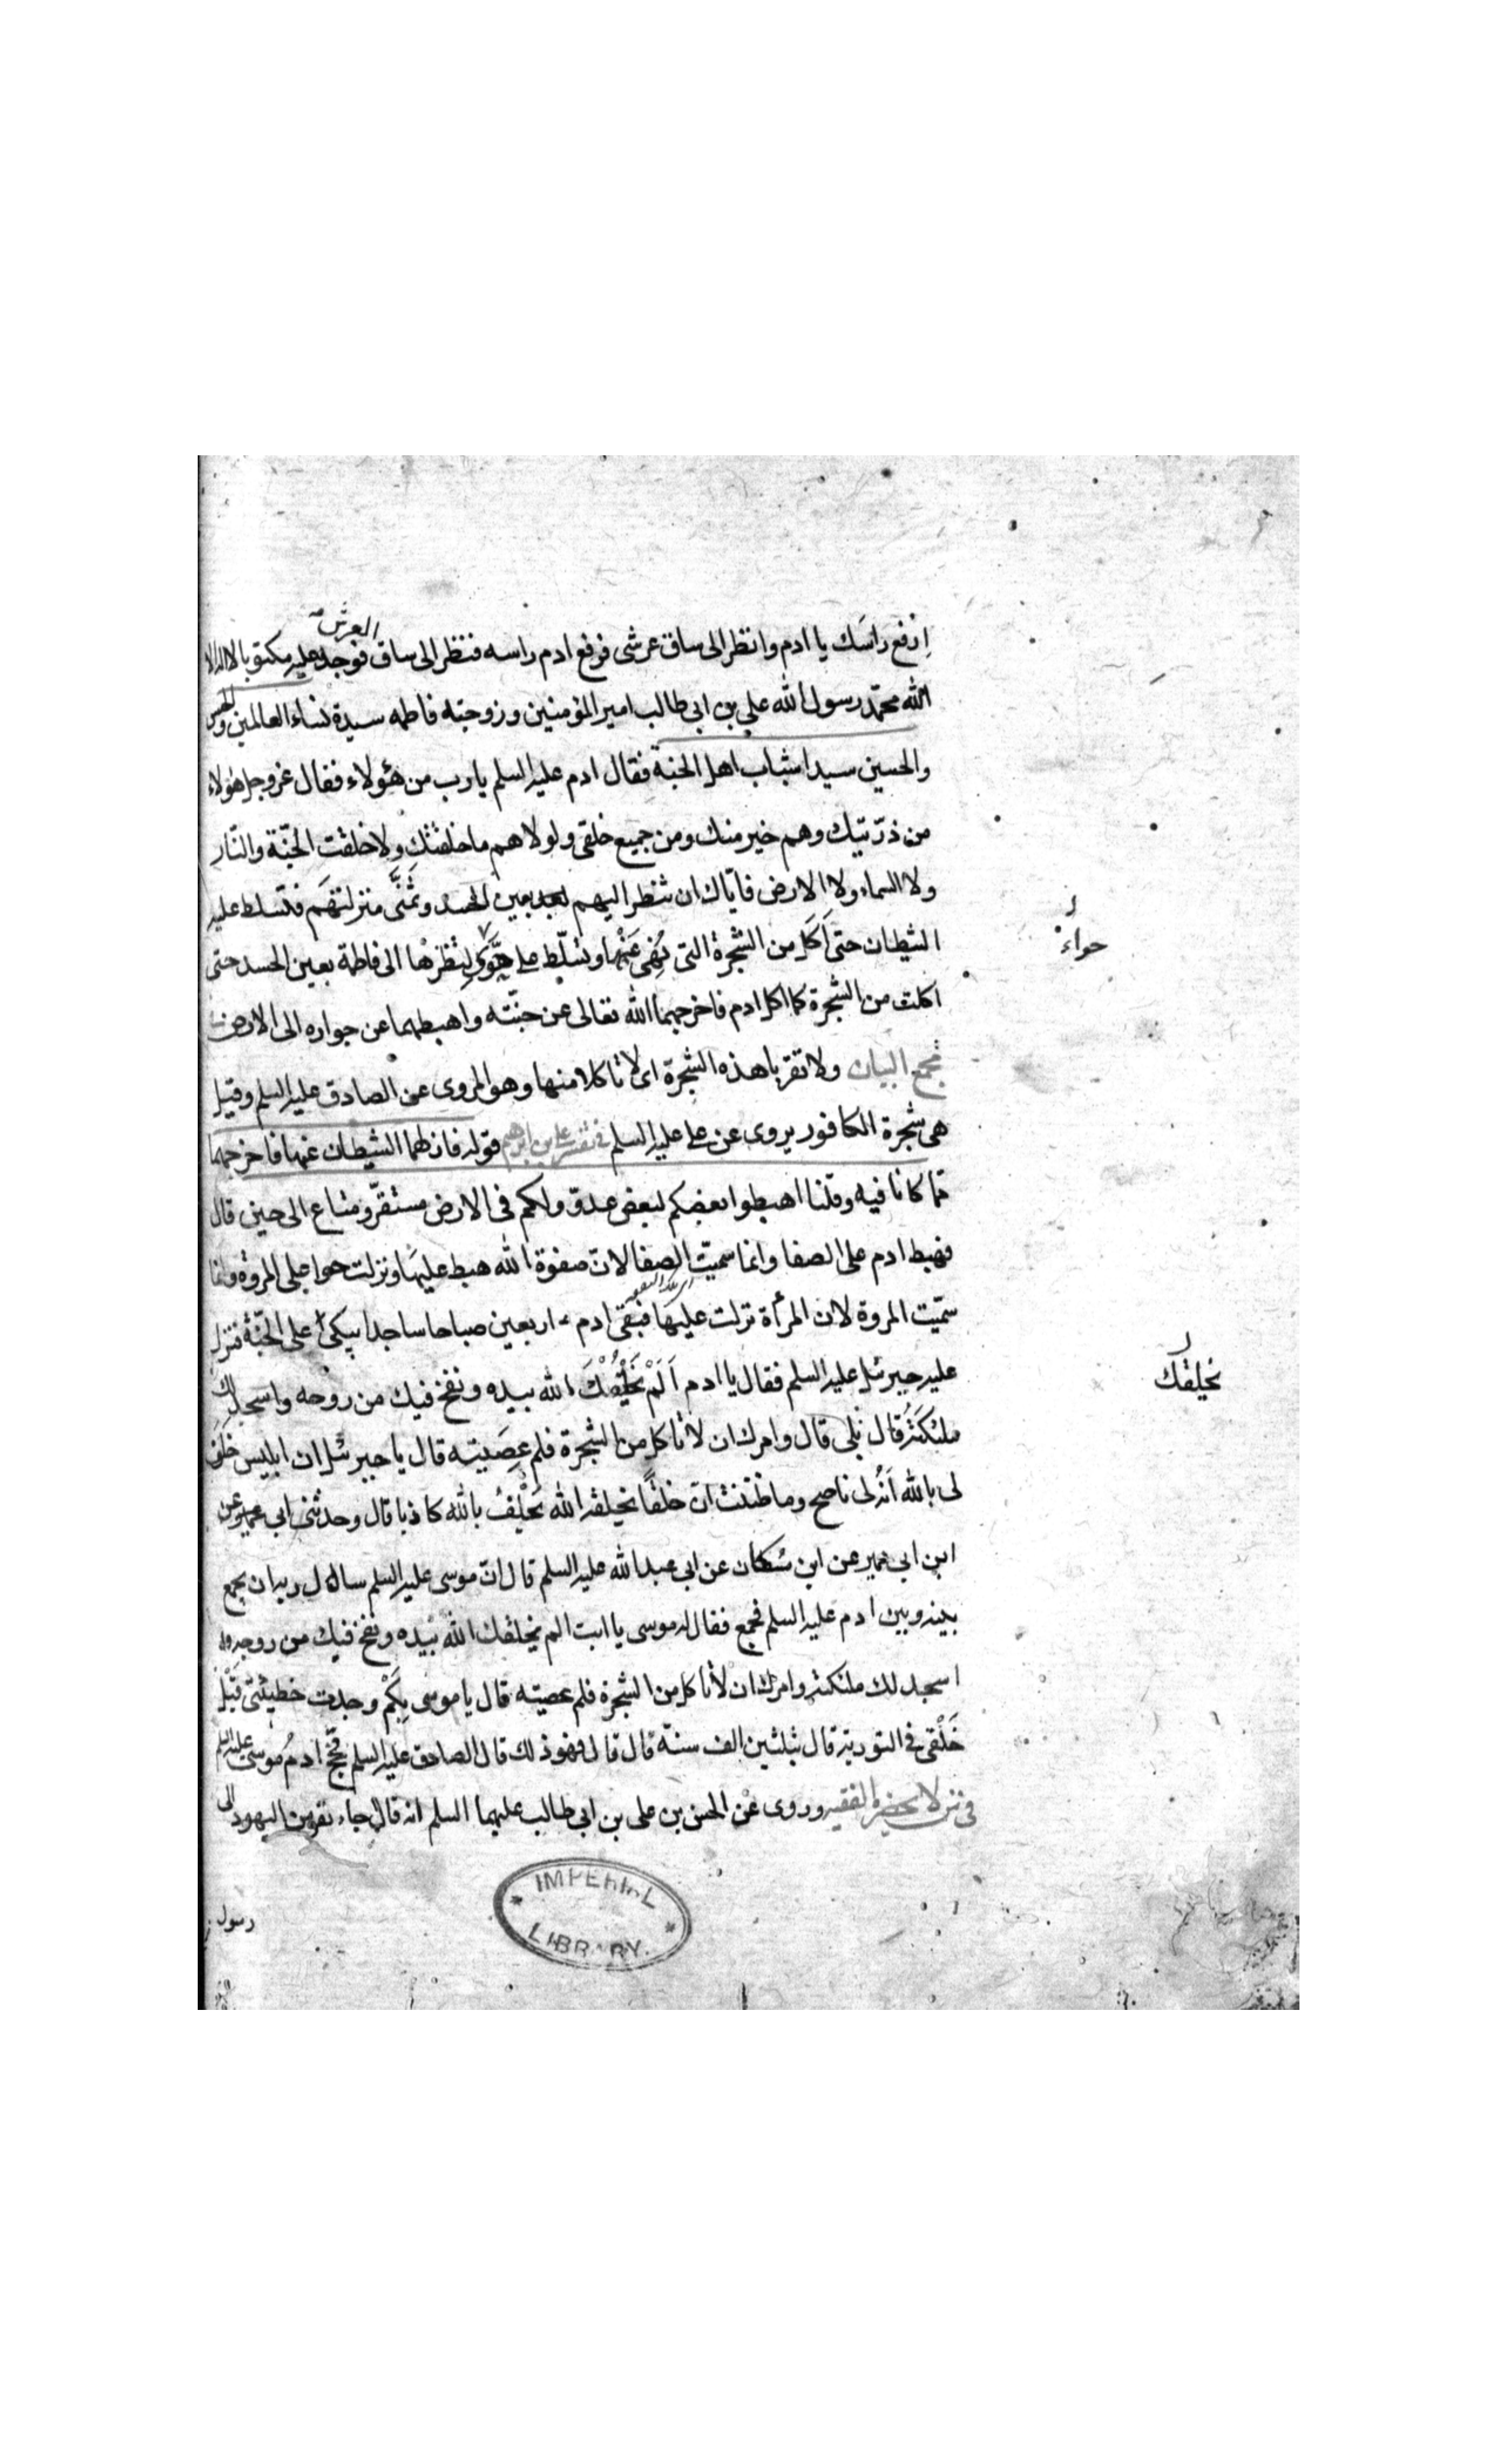 العرش
اِرْفَع رَاسَك يا ادم وانظر الى ساق عرشى فرفع ادم راسه فنظر الى ساق فوجد عليه مكتوبا لا اله الا
الله محمّد رسول الله علي بن ابى طالب امير المؤمنين وزوجته فاطمه سيدة نساء العالمين والحسن
والحسين سيدا شباب اهل الجنة فقال ادم عليه السلم يارب من هؤلاء فقال عزوجل هؤلاء
من ذرّيتيك وهم خير منك ومن جميع خلقى ولولاهم ما خلقتك ولا خلقت الجنّة والنّار
ولا السماء ولا الارض فايّاك ان تنظر اليهم بعين الحسد وتمنّى منزلتهم فتسلط عليه
الشيطان حتى اَكَل من الشّجرة التى نُهِى عَنْها وتسلّط على حوّى لِنَظَرِها الى فاطمة بعين الحسد حتى
حواء
اكلت من الشّجرة كما اكل ادم فاخرجهما الله تعالى عن جنّته واهبطهما عن جواره الى الارض
مجمع البيان ولا تقربا هذه الشّجرة اى لا تاكلا منها وهو المروى عن الصادق عليه السلم وقيل
هى شجرة الكافور يروى عن على عليه السلم فى تفسير على بن ابرهيم قوله فازلهما الشيطان عنها فاخرجهما
مما كانا فيه وقلنا اهبطوا بعضكم لبعض عدوّ ولكم فى الارض مستقرّ ومتاع الى حين قال
فهبط ادم على الصفا وانما سميّت الصفا لانّ صفوة الله هبط عليها ونزلت حوا على المروة وانما
سمّيت المروة لان المرأة نزلت عليها فبقى ادم اربعين صباحا ساجدا يبكى على الجنّة فنزل
عليه جبرئيل عليه السلم فقال يا ادم اَلَمْ يَخْلُقْكَ الله بيده ونفخ فيك من روحه واسجد لك
يخلقك
ملئكتَهُ قال بَلى قال وامرك ان لا تاكل من الشّجرة فلم عَصَيته قال يا جبرئيل ان ابليس حَلَفَ
لى بالله اَنّه لى ناصح وما ظننت انّ خلقًا يخلقه الله يَحْلِفُ بالله كاذبا قال وحدثنى ابى عن
ابن ابى عمير عن ابن مُسكان عن ابى عبد الله عليه السلم قال انّ موسى عليه السلم سال ربه ان يجمع
بينه وبين ادم عليه السلم فجمع فقال له موسى يا ابت الم يخلقك الله بيده ونفخ فيك من روحه و
اسجد لك ملئكته وامرك ان لا تاكل من الشجرة فلم عصيته قال يا موسى بِكَمْ وجدت خطيئتى قبل
خَلْقى فى التورية قال بثلثين الف سنة قال قال فهو ذلك قال الصادق عليه السلم فحجّ ادمُ موسى عليه السلم
فى من لا يحضره الفقيه وروى عن الحسن بن على بن ابى طالب عليهما السلم انه قال جاء نفر من اليهود الى
رسول
IMPERIAL
LIBRARY.